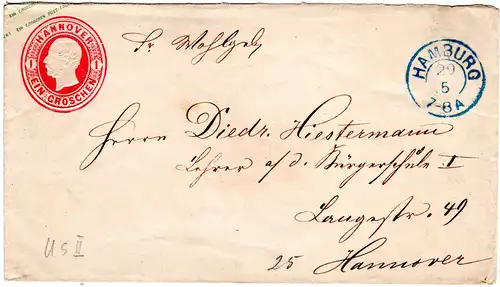 EIN GROSCHEN POST-COUVERT
HANNOVER
1 1
EIN GROSCHEN
Sr Wohlgeb
HAMBURG
29
5
7-8A
Herrn Diedr. Hiestermann
Lehrer a/d. Bürgerschule I
Langestr. 49
25 Hannover
U 5 II